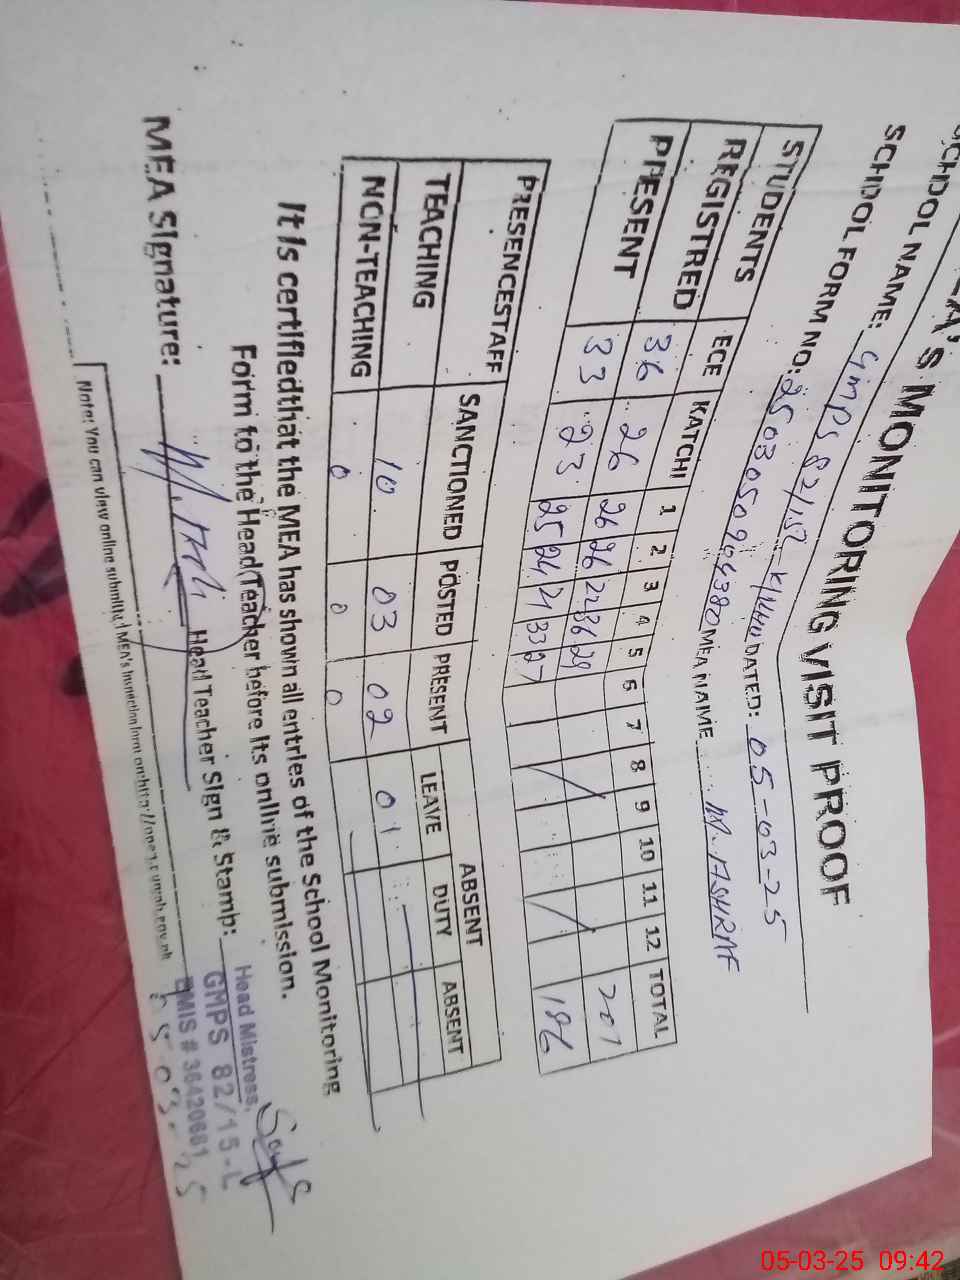 MEA'S MONITORING VISIT PROOF
SCHOOL NAME: GMPS 82/15L
SCHOOL FORM NO: DATED: 05-03-25
MEA NAME M. ASHRAF
STUDENTS ECE KATCHI 1 2 3 4 5 6 7 8 9 10 11 12 TOTAL
REGISTRED 36 26 26 26 22 36 29 201
PRESENT 33 23 25 24 21 33 27 186
PRESENCESTAFF SANCTIONED POSTED PRESENT ABSENT
LEAVE DUTY ABSENT
TEACHING 10 03 02 01
NON-TEACHING 0 0 0
It is certifiedthat the MEA has shown all entries of the School Monitoring
Form to the Head Teacher before its online submission.
MEA Signature: Head Teacher Sign & Stamp:
Head Mistress,
GMPS 82/15-L
EMIS # 36420681
05-03-25
Note: You can view online submitted MEA's
05-03-25 09:42